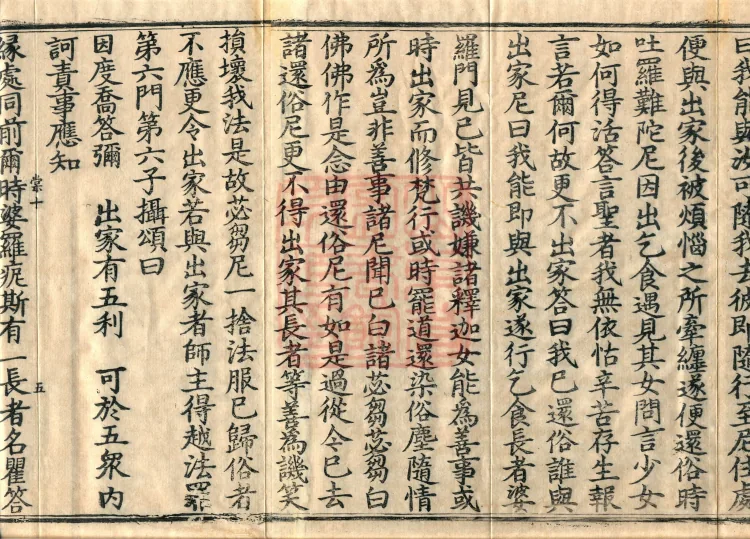 曰我能與汝可隨我去彼即隨行至居住處
便與出家後被煩惱之所牽纏遂便還俗時
吐羅難陀尼因出乞食遇見其女問言少女
如何得活答言聖者我無依怙辛苦存生報
言若爾何故更不出家答曰我已還俗誰與
出家尼曰我能即與出家遂行乞食長者婆
羅門見已皆共譏嫌諸釋迦女能為善事或
時出家而修梵行或時罷道還染俗塵隨情
所為豈非善事諸尼聞已白諸苾芻苾芻白
佛佛作是念由還俗尼有如是過從今已去
諸還俗尼更不得出家其長者等善為譏笑
損壞我法是故苾芻尼一捨法服已歸俗者
不應更令出家若與出家者師主得越法罪
第六門第六子攝頌曰
因度喬答彌 出家有五利 可於五眾內
訶責事應知
棠十 五
緣處同前爾時婆羅痆斯有一長者名瞿答